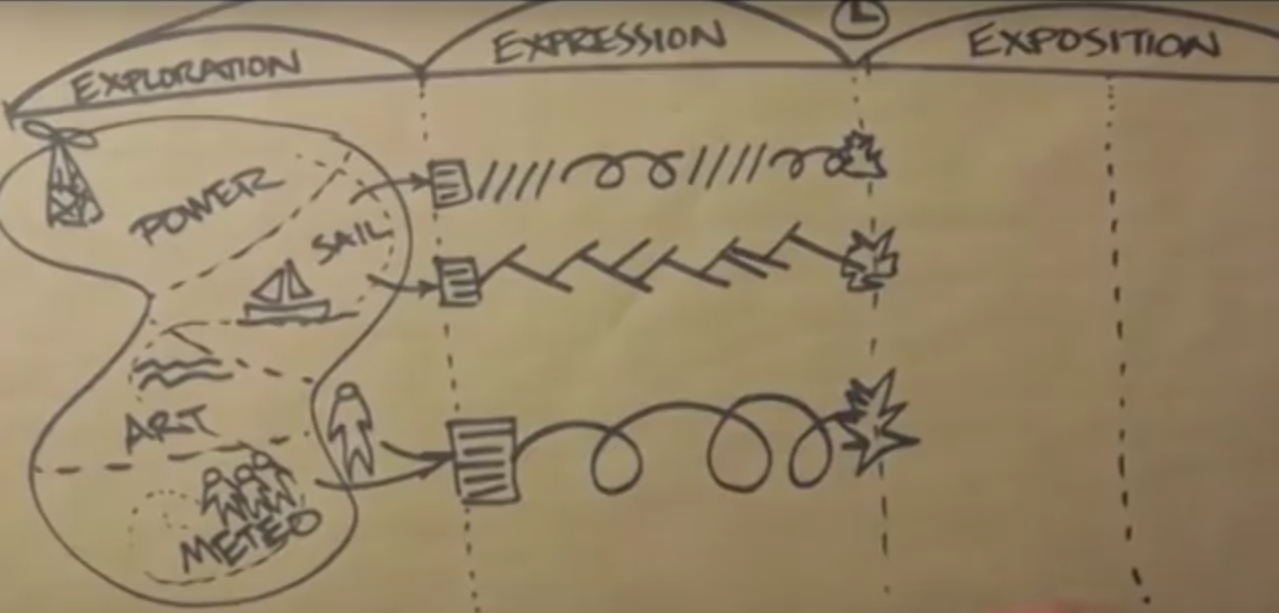 EXPLORATION
EXPRESSION
EXPOSITION
POWER
SAIL
ART
METEO